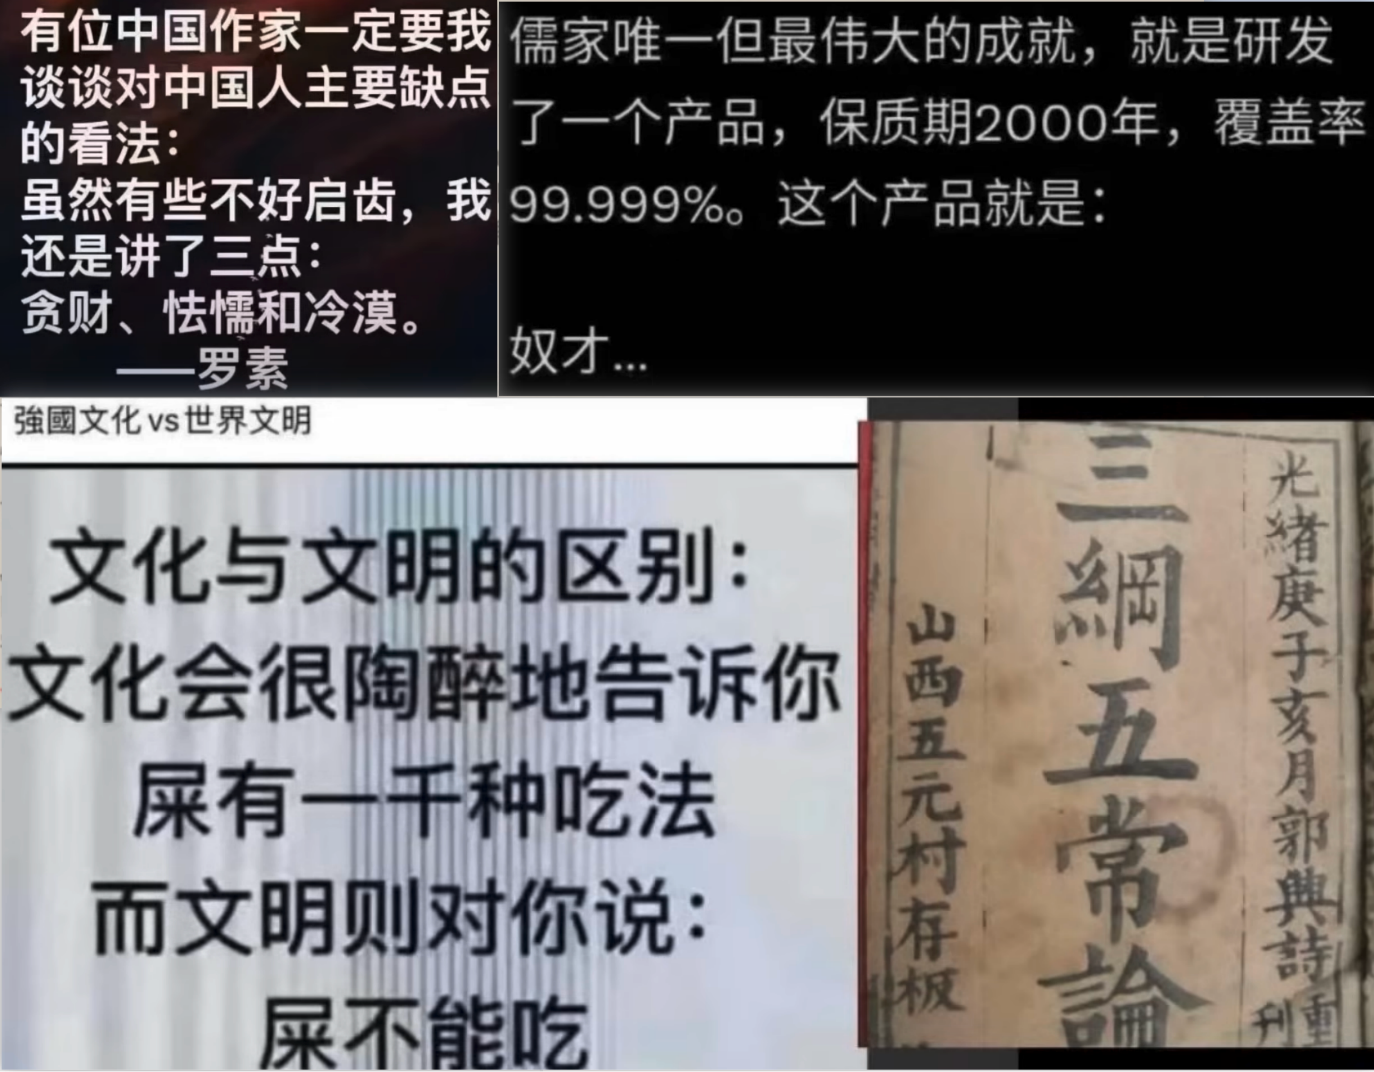 有位中国作家一定要我
谈谈对中国人主要缺点
的看法：
虽然有些不好启齿，我
还是讲了三点：
贪财、怯懦和冷漠。
——罗素
儒家唯一但最伟大的成就，就是研发
了一个产品，保质期2000年，覆盖率
99.999%。这个产品就是：
奴才...
強國文化 vs 世界文明
文化与文明的区别：
文化会很陶醉地告诉你
屎有一千种吃法
而文明则对你说：
屎不能吃
光緒庚子亥月郭興詩重刊
三綱五常論
山西五元村存板